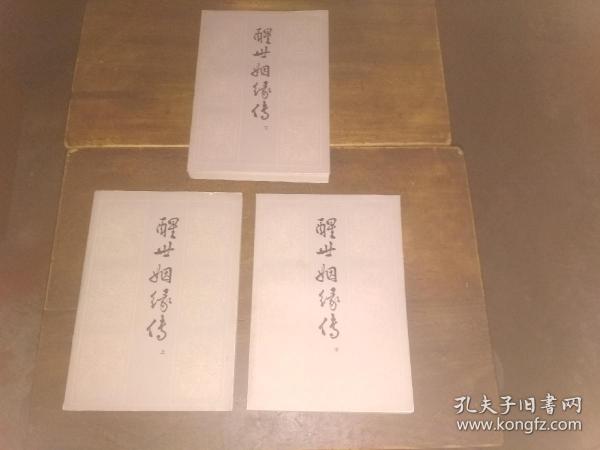 醒世姻缘传
下
醒世姻缘传
上
醒世姻缘传
中
孔夫子旧书网
www.kongfz.com